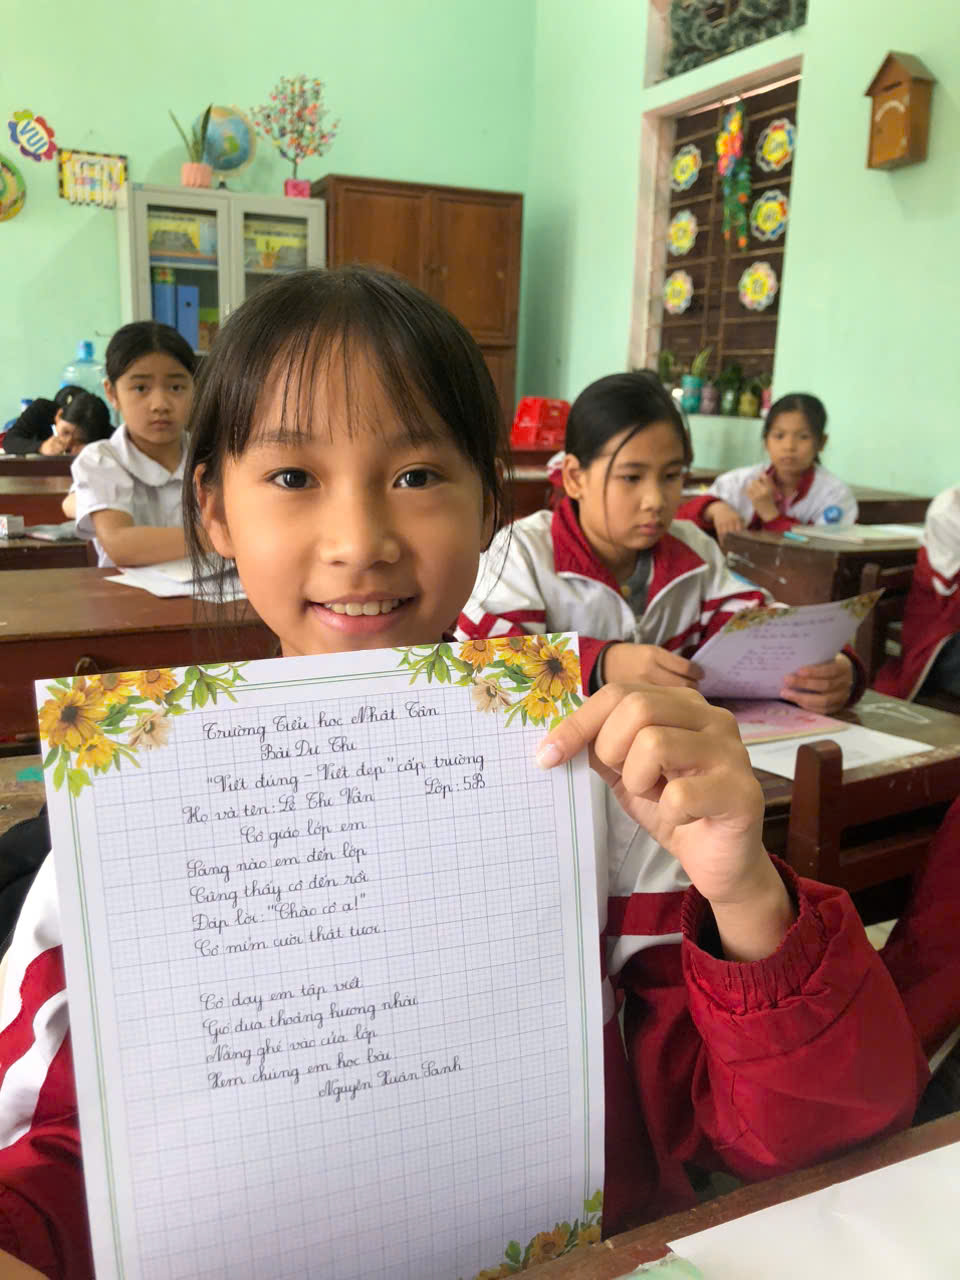 VUI
Trường Tiểu học Nhật Tân
Bài Dự Thi
"Viết đúng - Viết đẹp" cấp trường
Họ và tên: Lê Thị Vân Lớp: 5B
Cô giáo lớp em
Sáng nào em đến lớp
Cũng thấy cô đến rồi
Đáp lời: "Chào cô ạ!"
Cô mỉm cười thật tươi.
Cô dạy em tập viết
Gió đưa thoảng hương nhài
Nắng ghé vào cửa lớp
Xem chúng em học bài.
Nguyễn Xuân Sanh